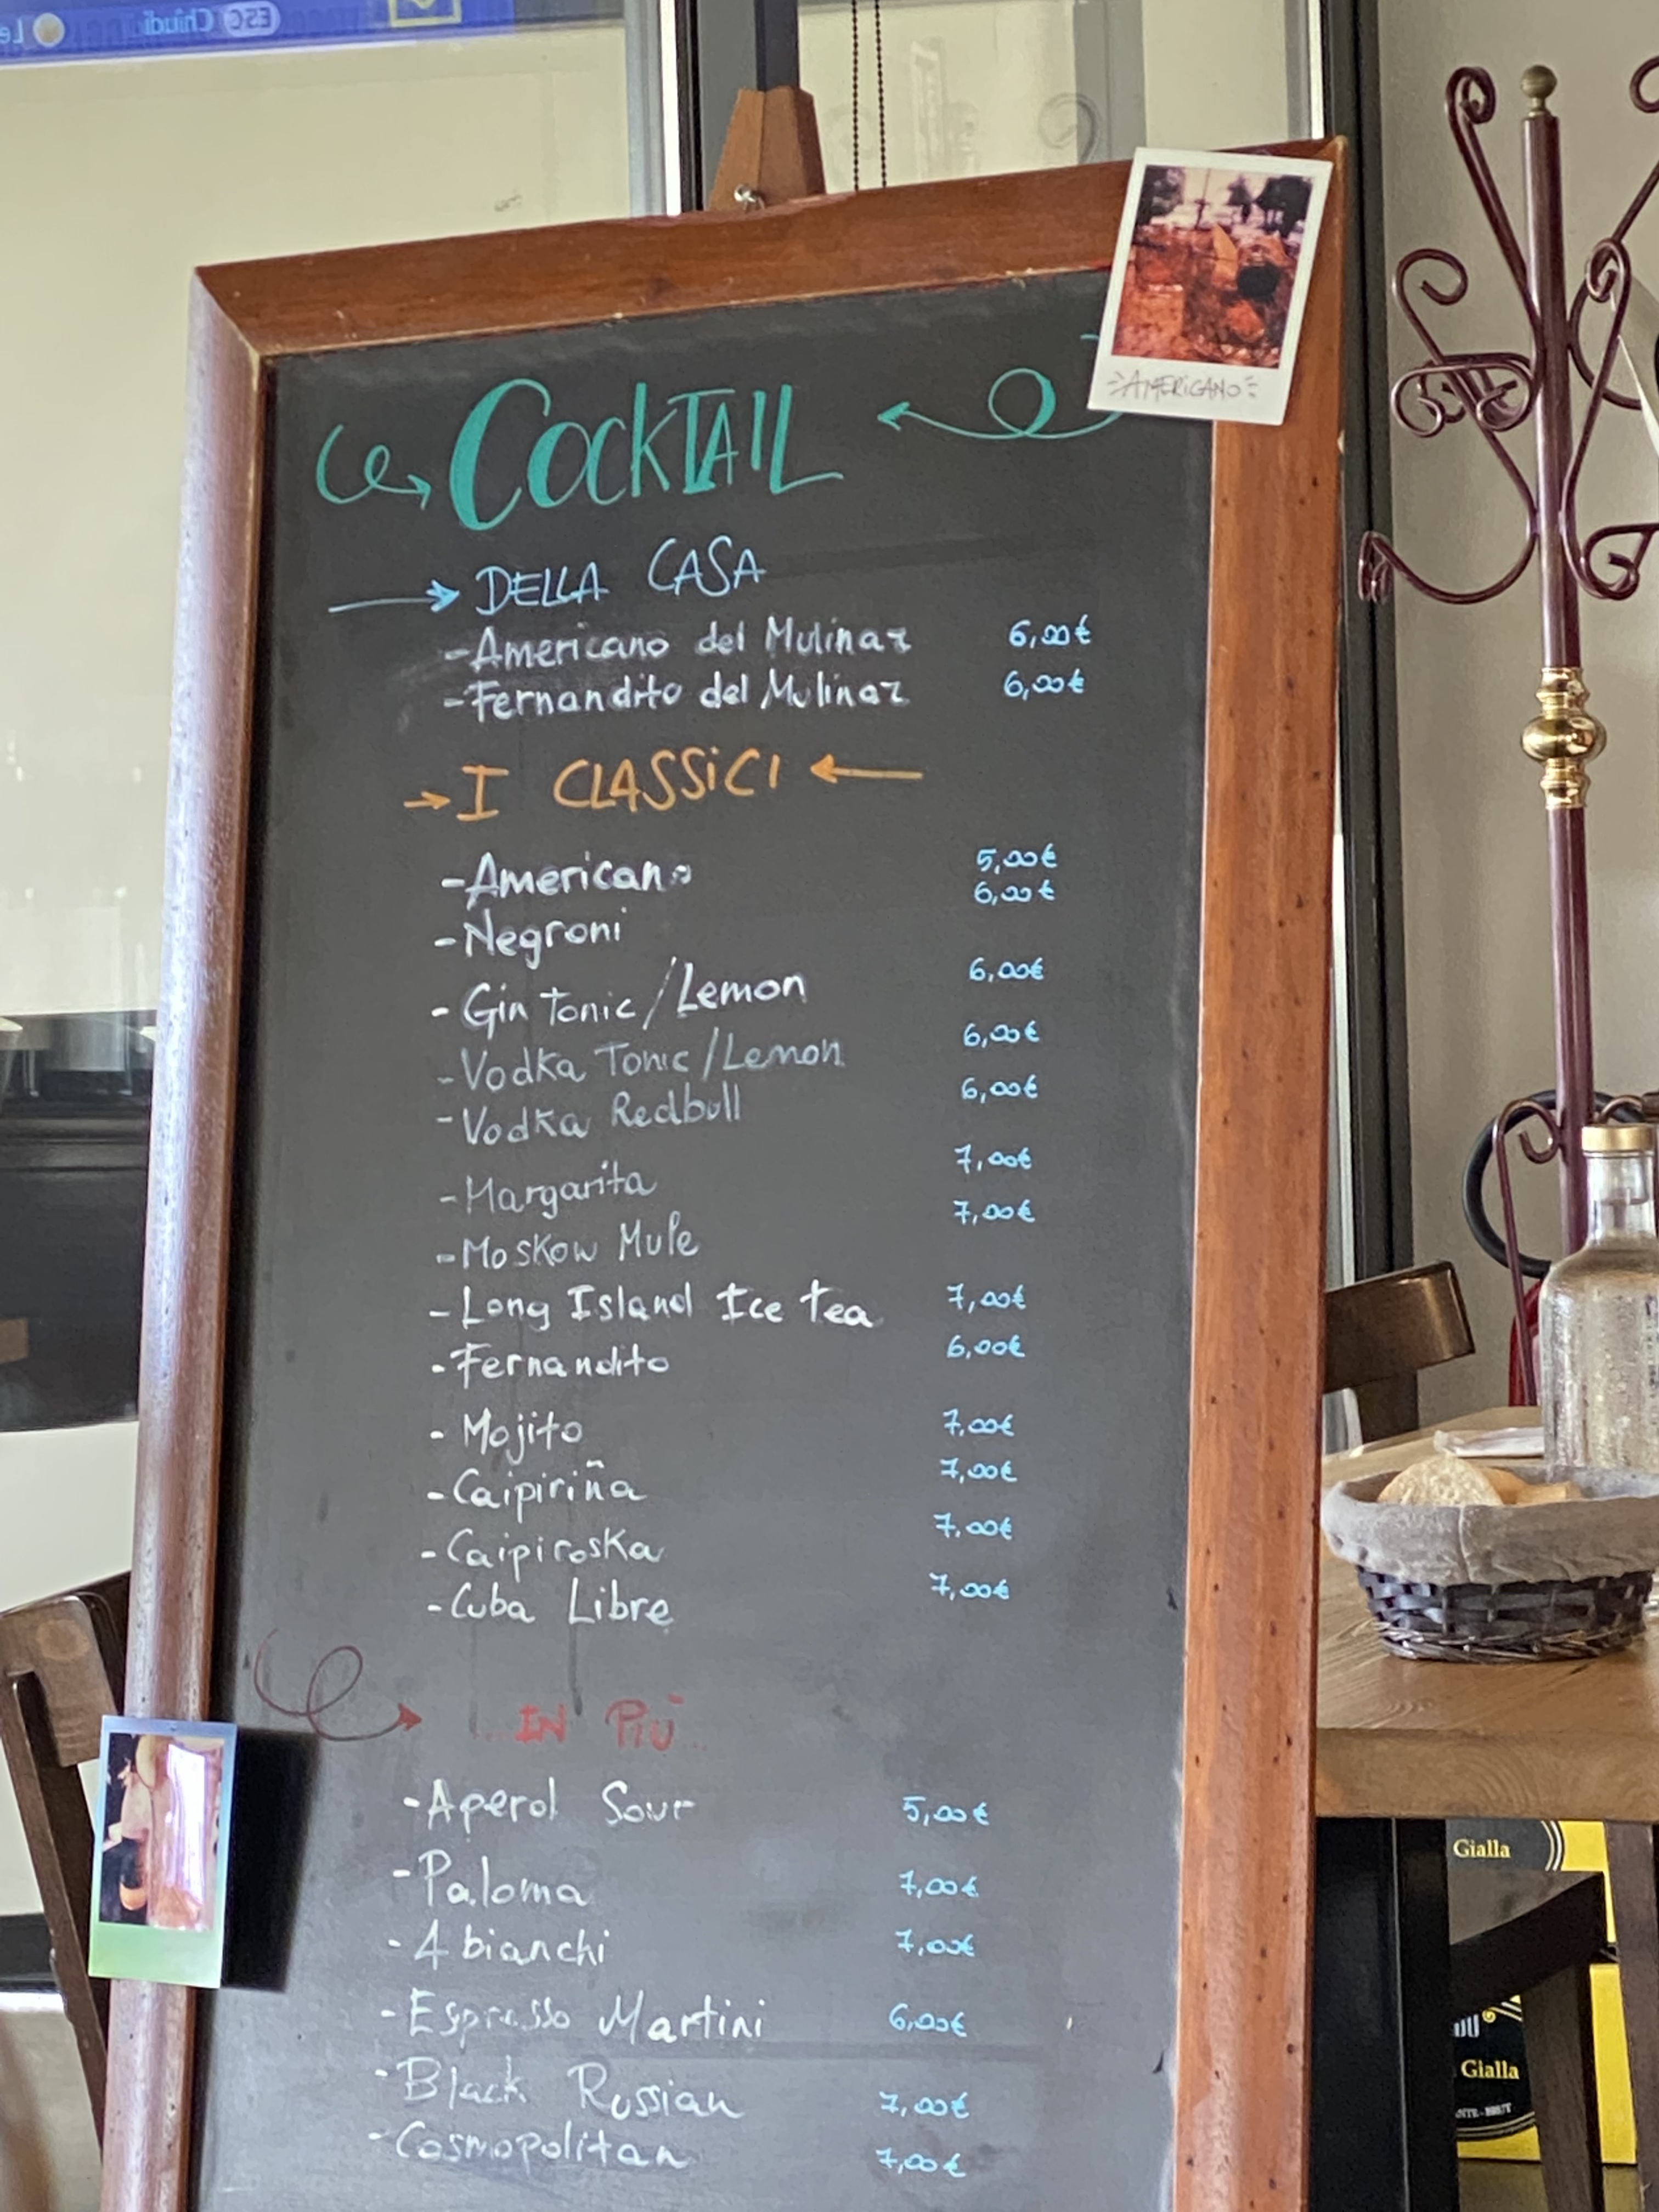 ESC Chiudi Le
AMERICANO
COCKTAIL
DELLA CASA
-Americano del Mulinar 6,00€
-Fernandito del Mulinar 6,00€
I CLASSiCI
-Americano 5,00€
-Negroni 6,00€
- Gin Tonic/Lemon 6,00€
-Vodka Tonic/Lemon 6,00€
-Vodka Redbull 6,00€
-Margarita 7,00€
-Moskow Mule 7,00€
-Long Island Ice tea 7,00€
-Fernandito 6,00€
- Mojito 7,00€
-Caipiriña 7,00€
-Caipiroska 7,00€
-Cuba Libre 7,00€
...IN PIÙ...
-Aperol Sour 5,00€
-Paloma 7,00€
-4 bianchi 7,00€
-Espresso Martini 6,00€
-Black Russian 7,00€
-Cosmopolitan 7,00€
Gialla
Gialla